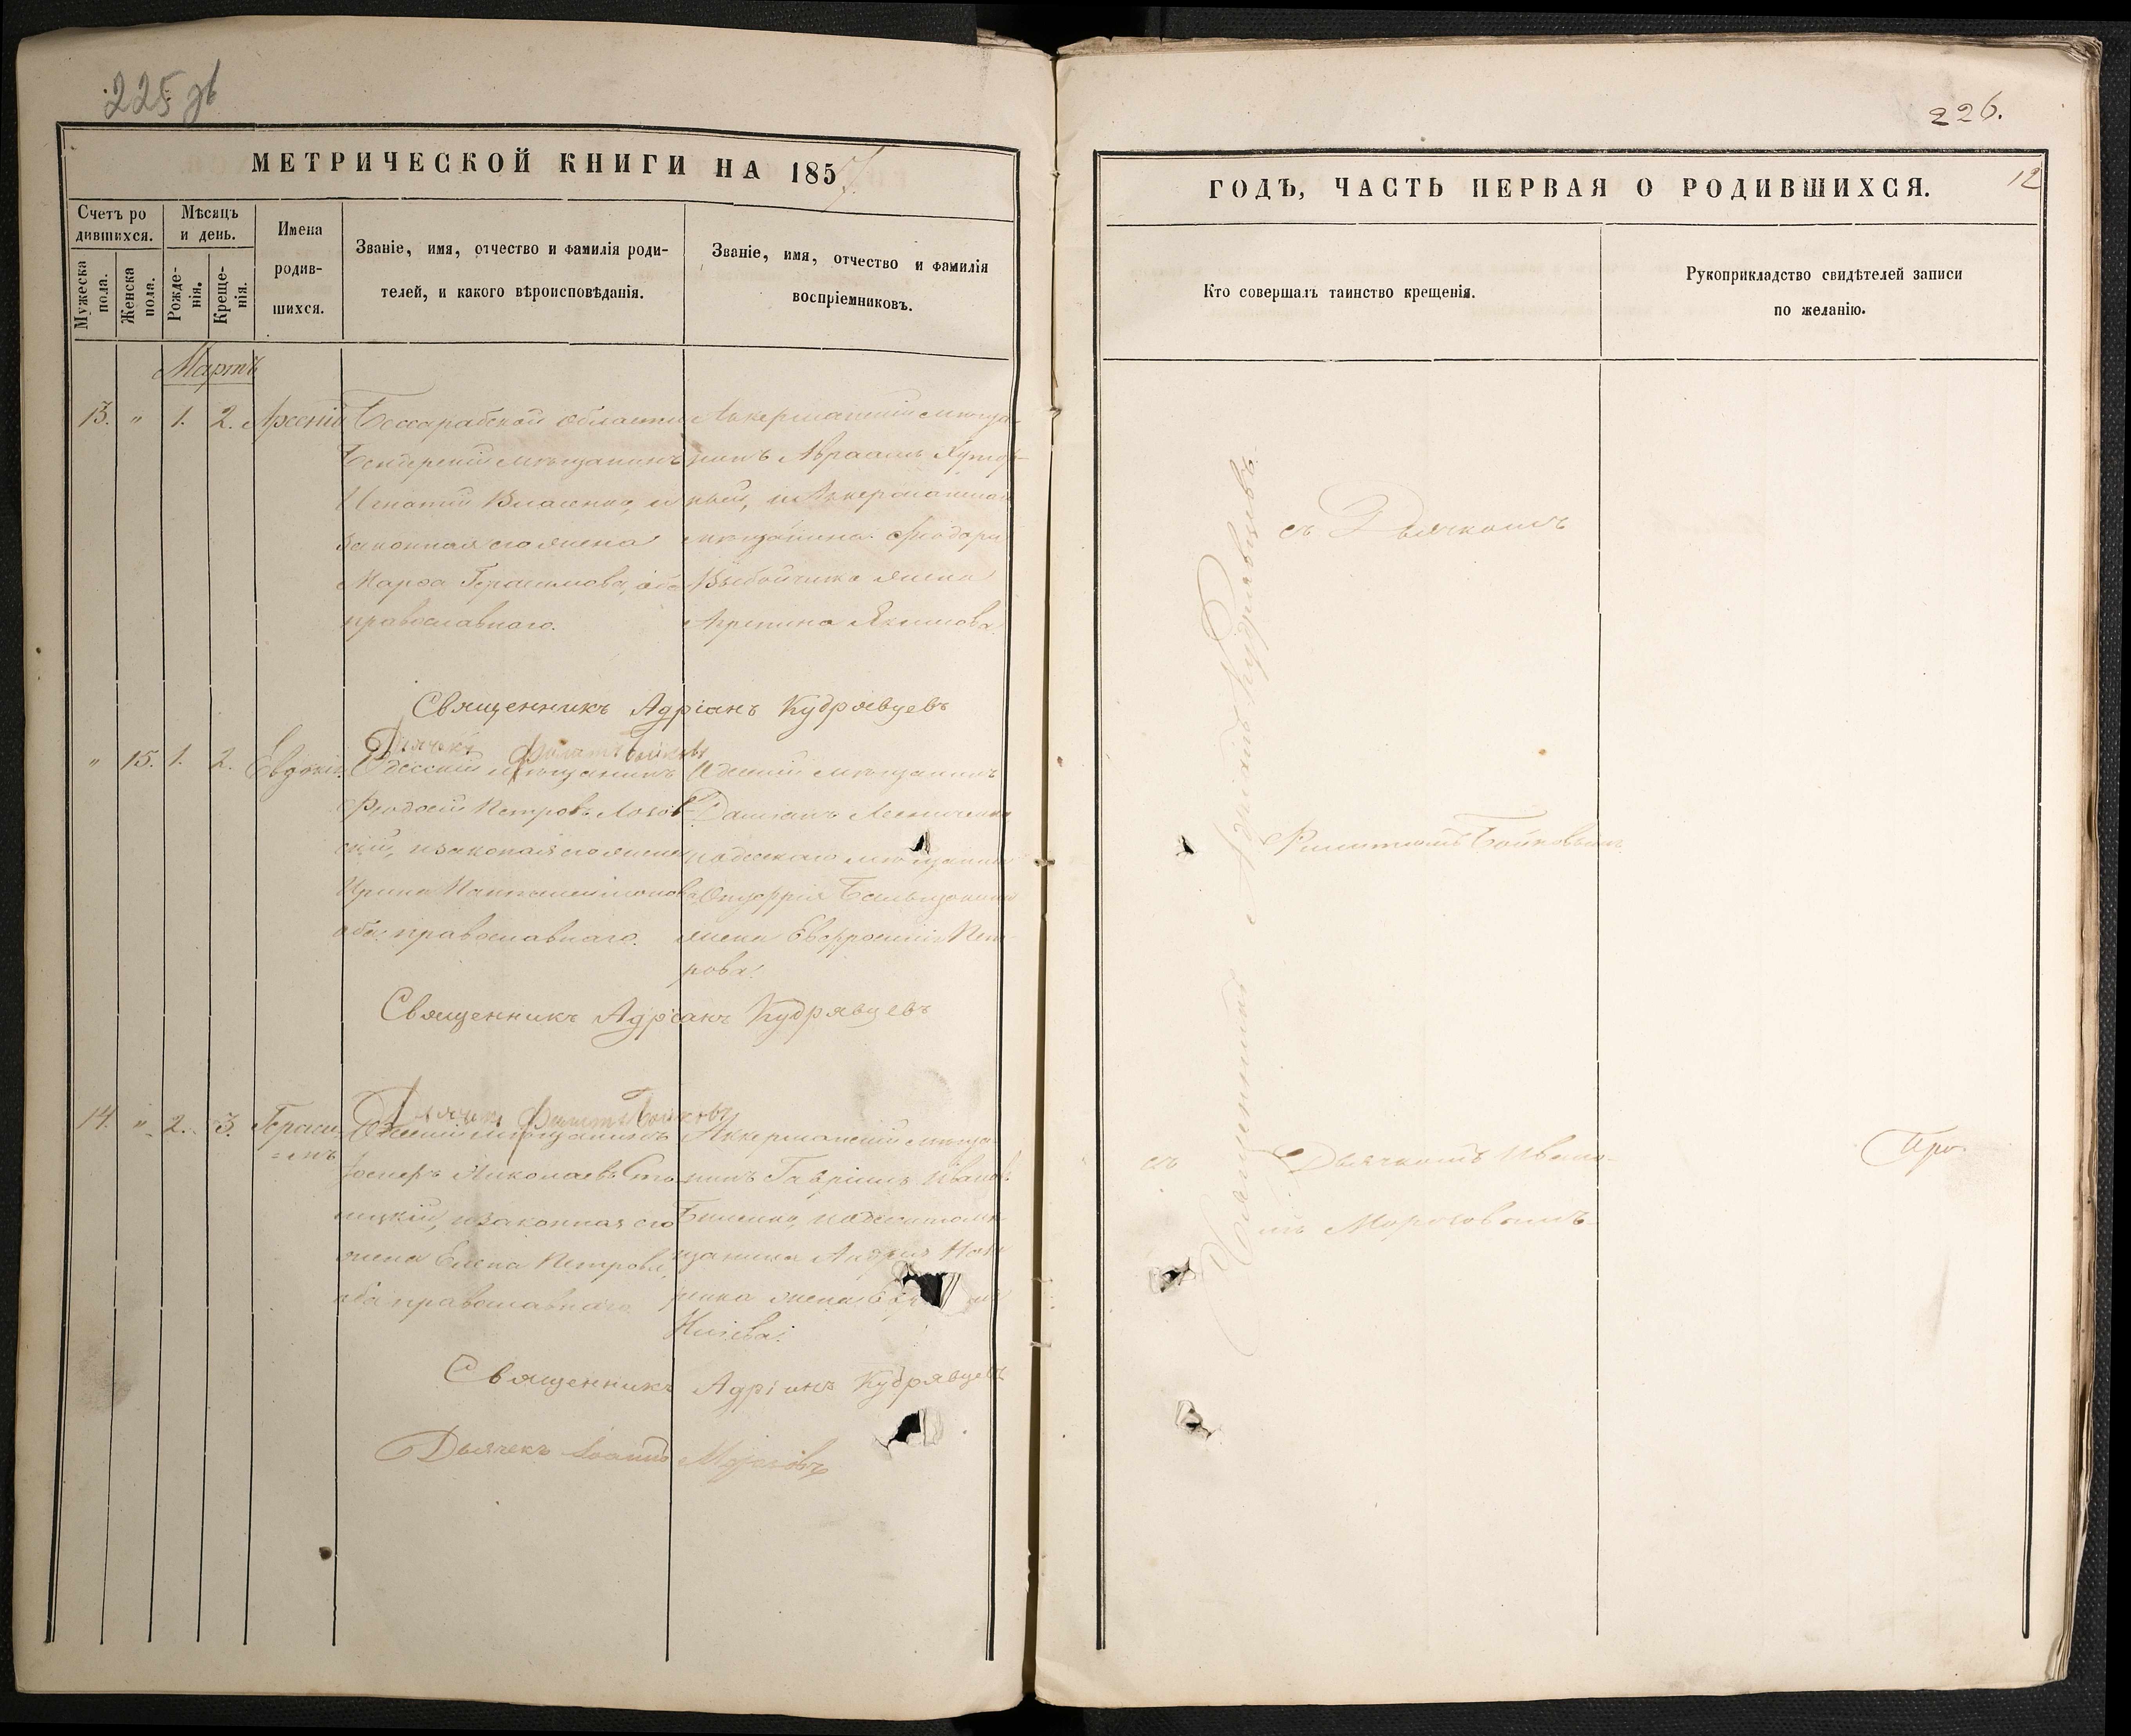 225 об
МЕТРИЧЕСКОЙ КНИГИ НА 1857
Счетъ ро
дившихся.
Мужеска
пола.
Женска
пола.
Мѣсяцъ
и день.
Рожде-
нія.
Креще-
нія.
Имена
родив-
шихся.
Званіе, имя, отчество и фамилія роди-
телей, и какого вѣроисповѣданія.
Званіе, имя, отчество и фамилія
воспріемниковъ.
Мартъ
13. " 1. 2. Арсеній
Бессарабской области
Бендерскій мѣщанинъ
Игнатій Власенко, и
законная его жена
Марѳа Герасимова, оба
православнаго.
Аккерманскій мѣща-
нинъ Авраамъ
и Аккерманскаго
мѣщанина Ѳеодора
жена
Агрепина Якимова.
Священникъ Адріанъ Кудрявцевъ
Дьячекъ Филатъ Бойковъ
" 15. 1. 2. Евдокія
Одесскій мѣщанинъ
Ѳеодосій Петровъ Лозов-
скій, и законная его жена
Ирина Пантелеимонова
оба православнаго.
Одесскій мѣщанинъ
Даміанъ
и одесскаго мѣщанина
Онуфрія
жена Евфросинія Пет-
рова.
Священникъ Адріанъ Кудрявцевъ
Дьячекъ Филатъ Бойковъ
14. " 2. 3. Гераси-
мъ
Одесскій мѣщанинъ
Іосифъ Николаевъ Сто-
лицкій, и законная его
жена Елена Петрова,
оба православнаго.
Аккерманскій мѣща-
нинъ Гавріилъ Ивановъ
и одесскаго мѣ-
щанина Андрея
жена
Священникъ Адріанъ Кудрявцевъ
Дьячекъ Іоаннъ Морозовъ
226.
12
ГОДЪ, ЧАСТЬ ПЕРВАЯ О РОДИВШИХСЯ.
Кто совершалъ таинство крещенія.
Рукоприкладство свидѣтелей записи
по желанію.
Священникъ Адріанъ Кудрявцевъ
съ Дьячкомъ
Филатомъ Бойковымъ
съ Дьячкомъ Ивано-
мъ Морозовымъ
Про